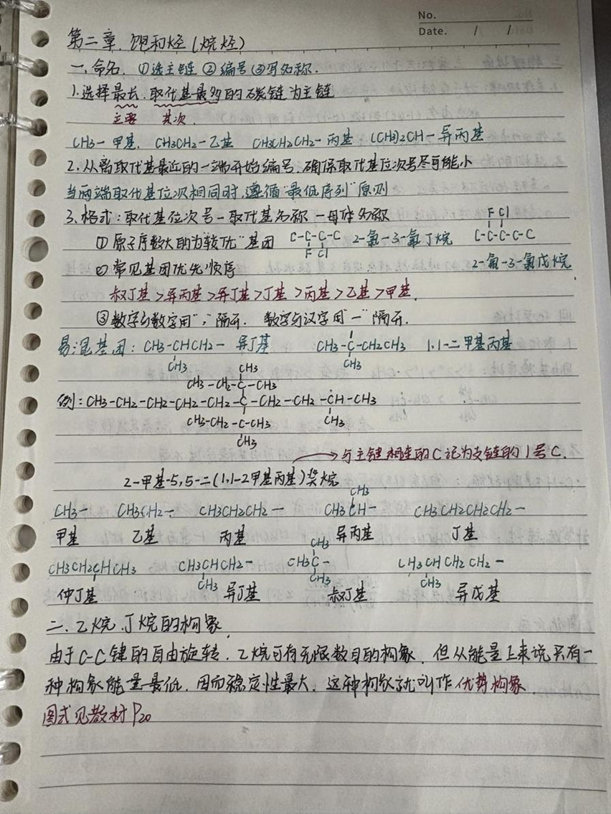 No.
Date. / /
第二章.饱和烃(烷烃)
一.命名. ①选主链 ②编号 ③写名称.
1.选择最长.取代基最多的碳链为主链
主要 其次.
CH3-甲基. CH3CH2-乙基 CH3CH2CH2-丙基 (CH3)2CH-异丙基
2.从离取代基最近的一端开始编号.确保取代基位次号尽可能小
当两端取代基位次相同时.遵循"最低序列"原则
3.格式:取代基位次号-取代基名称-母体名称
F Cl
①原子序数大的为"较优"基团 C-C-C-C 2-氟-3-氯丁烷 C-C-C-C-C
F Cl
②常见基团优先顺序 2-氟-3-氯戊烷
叔丁基>异丙基>异丁基>丁基>丙基>乙基>甲基.
③数字与数字用","隔开. 数字与汉字用"-"隔开.
易混基团: CH3-CHCH2- 异丁基 CH3-C-CH2CH3 1.1-二甲基丙基
CH3 CH3
CH3
CH3-CH2-C-CH3
例: CH3-CH2-CH2-CH2-CH2-C-CH2-CH2-CH-CH3
CH3-CH2-C-CH3 CH3
CH3
与主链相连的C记为支链的1号C.
2-甲基-5,5-二(1.1-2甲基丙基)癸烷
CH3
CH3- CH3CH2- CH3CH2CH2- CH3CH- CH3CH2CH2CH2-
甲基 乙基 丙基 异丙基 丁基
CH3
CH3CH2CHCH3 CH3CHCH2- CH3C- CH3CHCH2CH2-
CH3 CH3 CH3
仲丁基 异丁基 叔丁基 异戊基
二.乙烷.丁烷的构象.
由于C-C键的自由旋转.乙烷可有无限数目的构象.但从能量上来说只有一
种构象能量最低.因而稳定性最大.这种构象就叫作优势构象
图式见教材P20